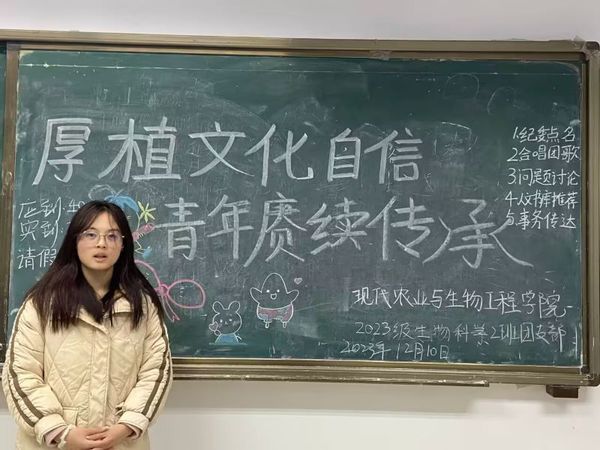 厚植文化自信
青年赓续传承
应到:
实到:
请假
1.纪委点名
2.合唱团歌
3.问题讨论
4.好书推荐
与事务传达
现代农业与生物工程学院
2023级生物科学2班团支部
2023年12月10日